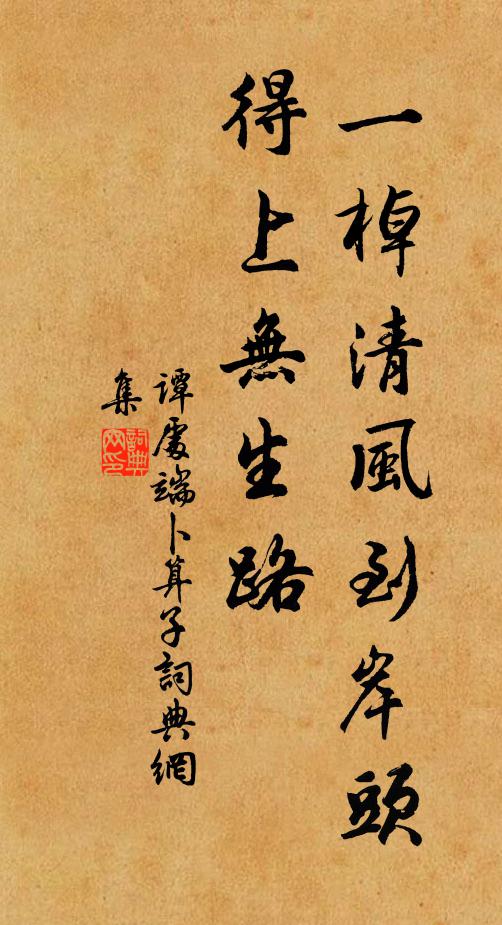 一棹清風到岸頭
得上無生路
譚處端卜算子詞典網
集
詞典網印